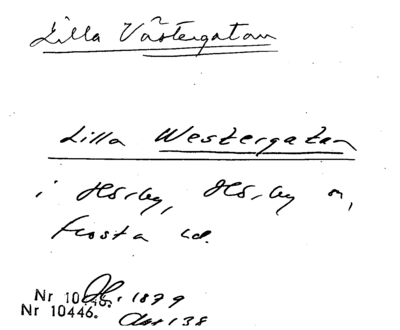 Lilla Västergatan
Lilla Westergatan
i Hörby, Hörby sn,
Frosta hd.
Nr 10446. 1879
Nr 10446. 138